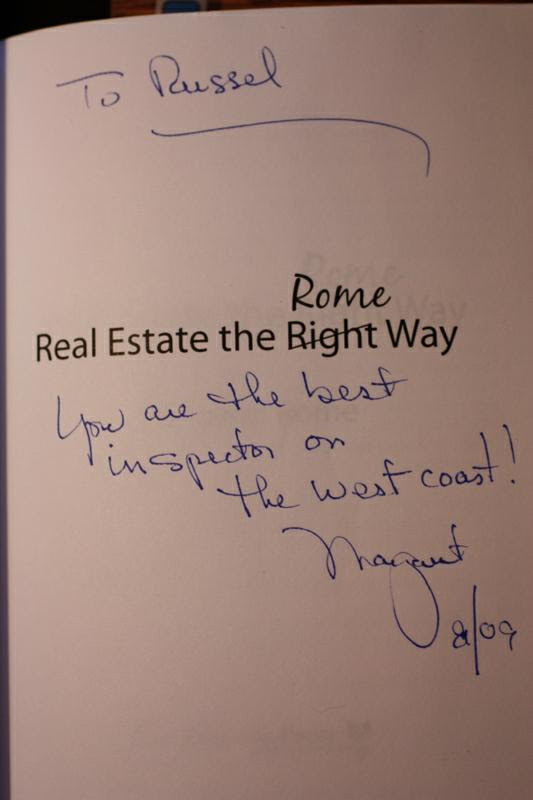 To Russel
Rome
Real Estate the Right Way
You are the best
inspector on
the west coast!
Margaret
8/09